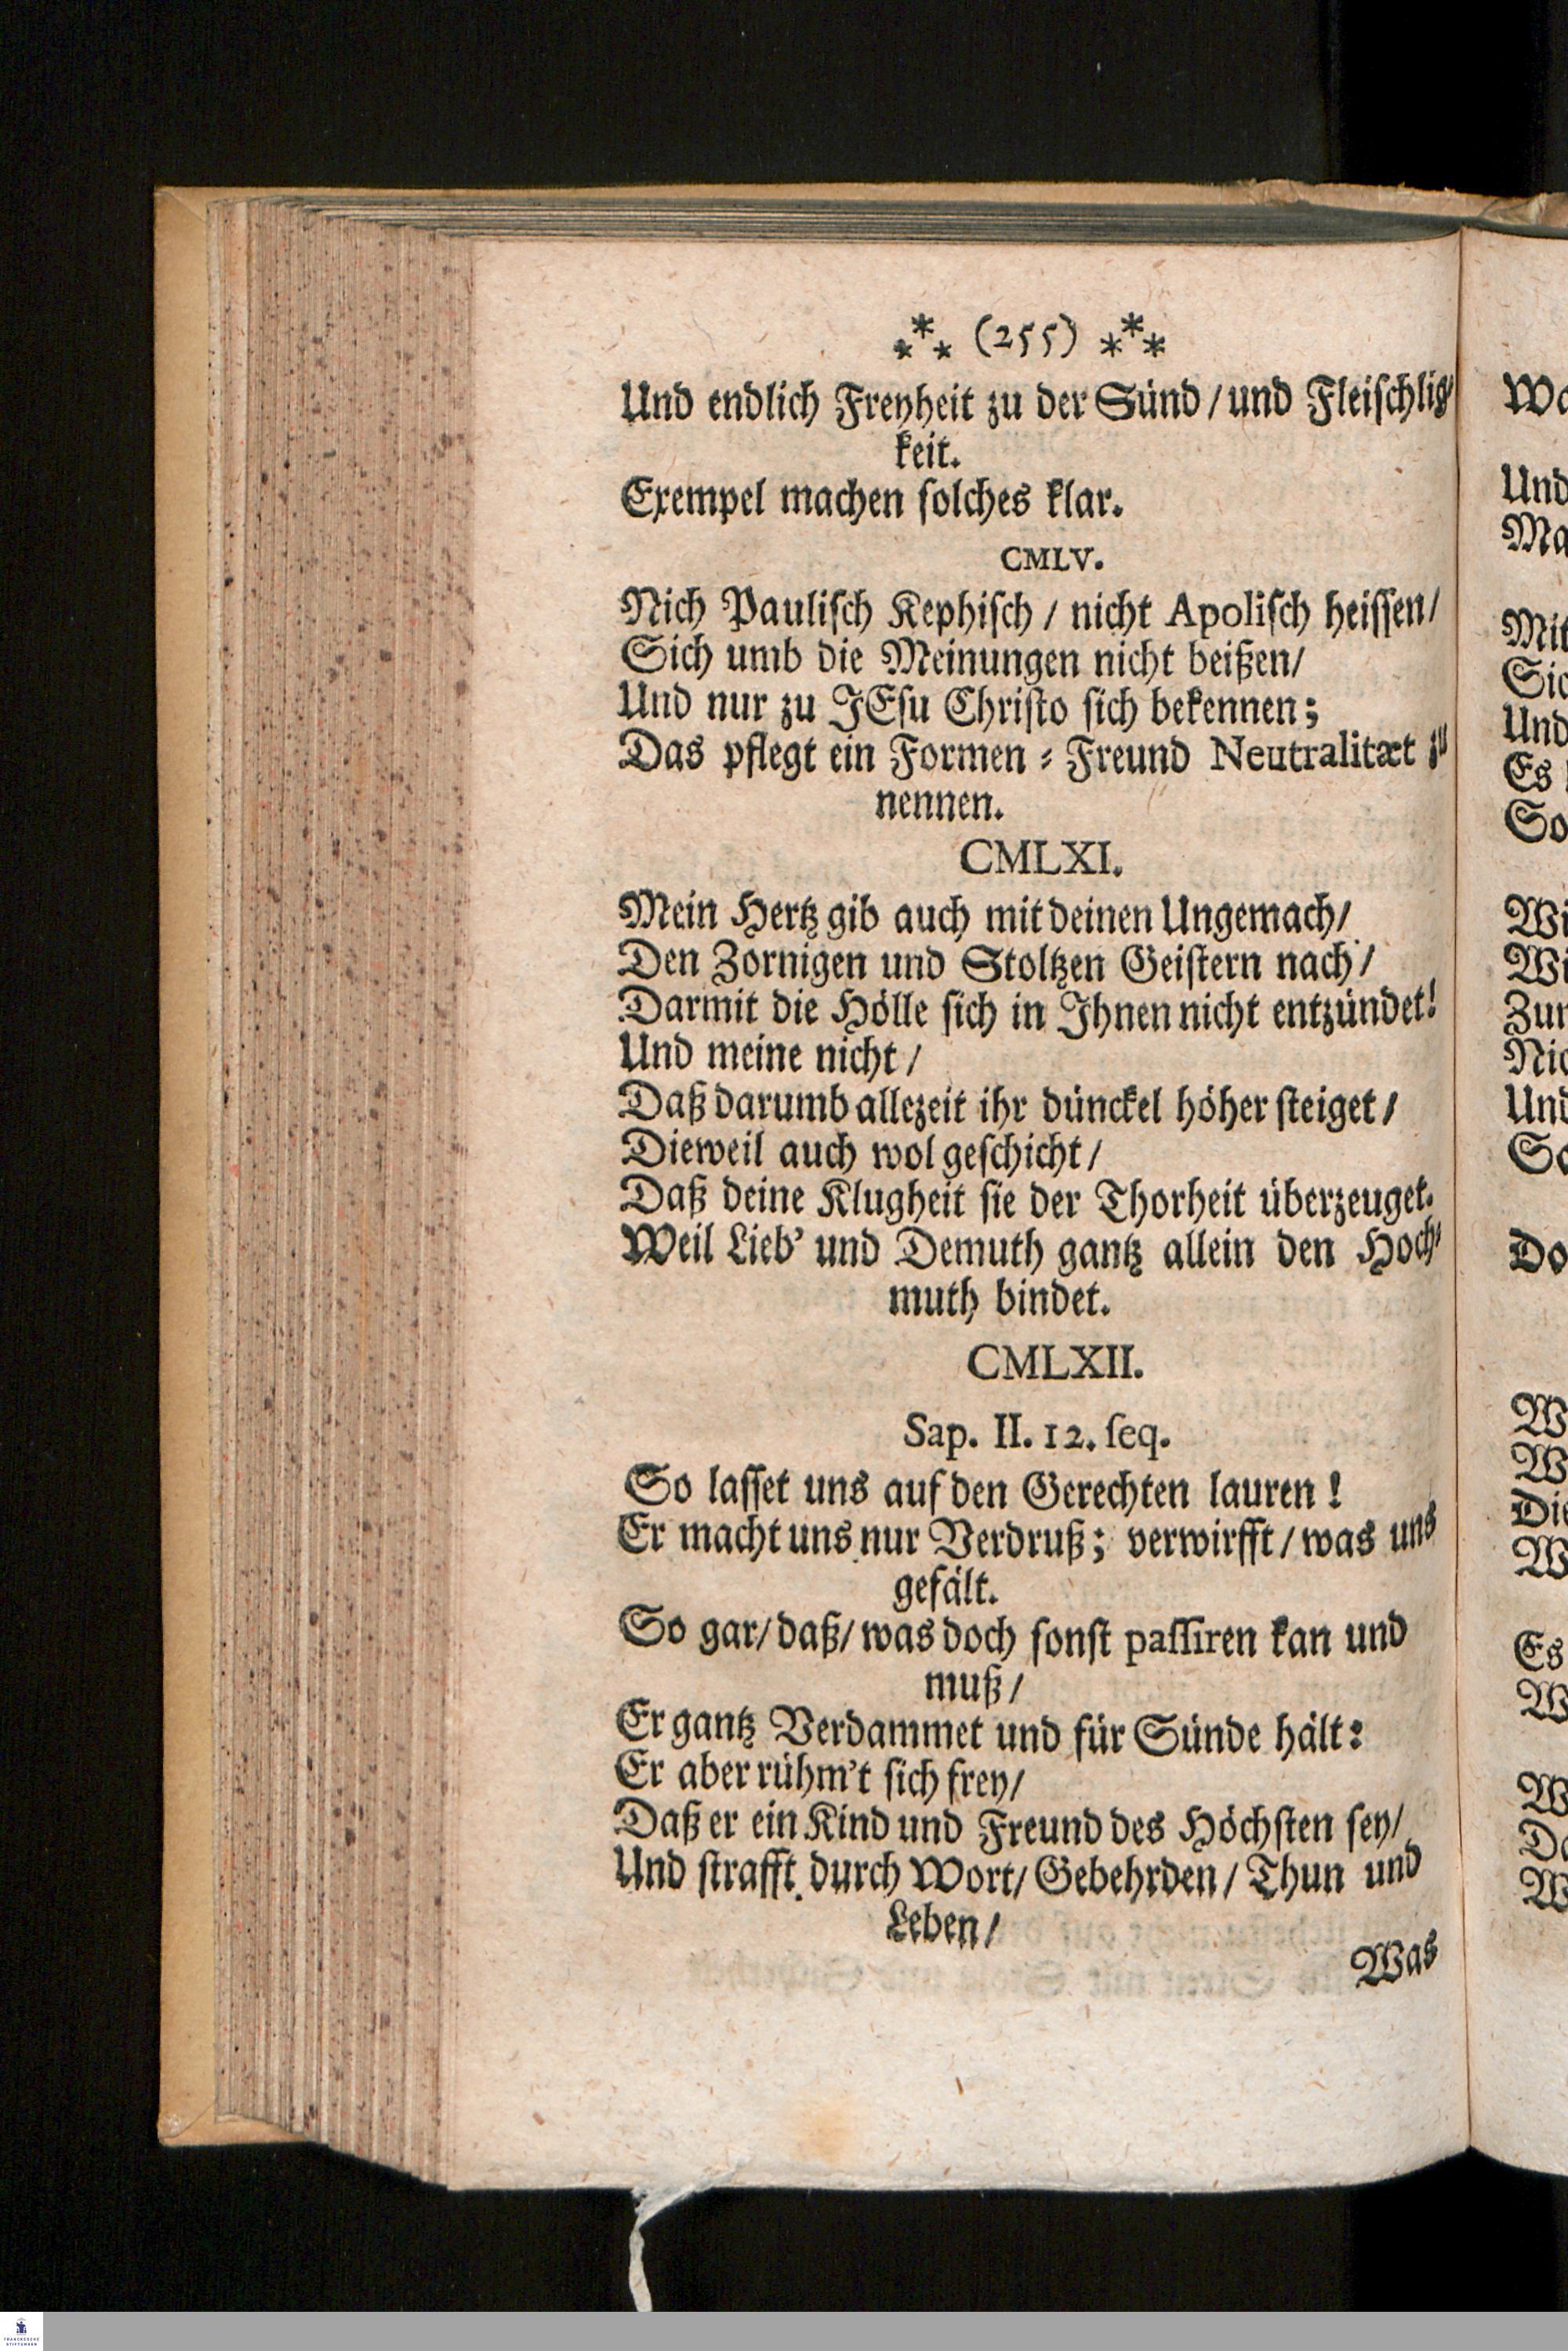 ⁂ (255) ⁂
Und endlich Freyheit zu der Sünd / und Fleischlig⸗
keit.
Exempel machen solches klar.
CMLV.
Nich Paulisch Kephisch / nicht Apolisch heissen /
Sich umb die Meinungen nicht beißen /
Und nur zu JEsu Christo sich bekennen;
Das pflegt ein Formen⸗Freund Neutralitæt zu
nennen.
CMLXI.
Mein Hertz gib auch mit deinen Ungemach /
Den Zornigen und Stoltzen Geistern nach /
Darmit die Hölle sich in Ihnen nicht entzündet!
Und meine nicht /
Daß darumb allezeit ihr dünckel höher steiget /
Dieweil auch wol geschicht /
Daß deine Klugheit sie der Thorheit überzeuget.
Weil Lieb' und Demuth gantz allein den Hoch⸗
muth bindet.
CMLXII.
Sap. II. 12. seq.
So lasset uns auf den Gerechten lauren !
Er macht uns nur Verdruß; verwirfft / was uns
gefält.
So gar / daß / was doch sonst passiren kan und
muß /
Er gantz Verdammet und für Sünde hält:
Er aber rühm't sich frey /
Daß er ein Kind und Freund des Höchsten sey /
Und strafft durch Wort / Gebehrden / Thun und
Leben /
Was
Und
Ma
Mit
Sic
Und
Es
So
Wi
Wi
Zur
Nic
Und
So
Do
W
W
Die
W
Es
W
W
Da
W
FRANCKESCHE
STIFTUNGEN